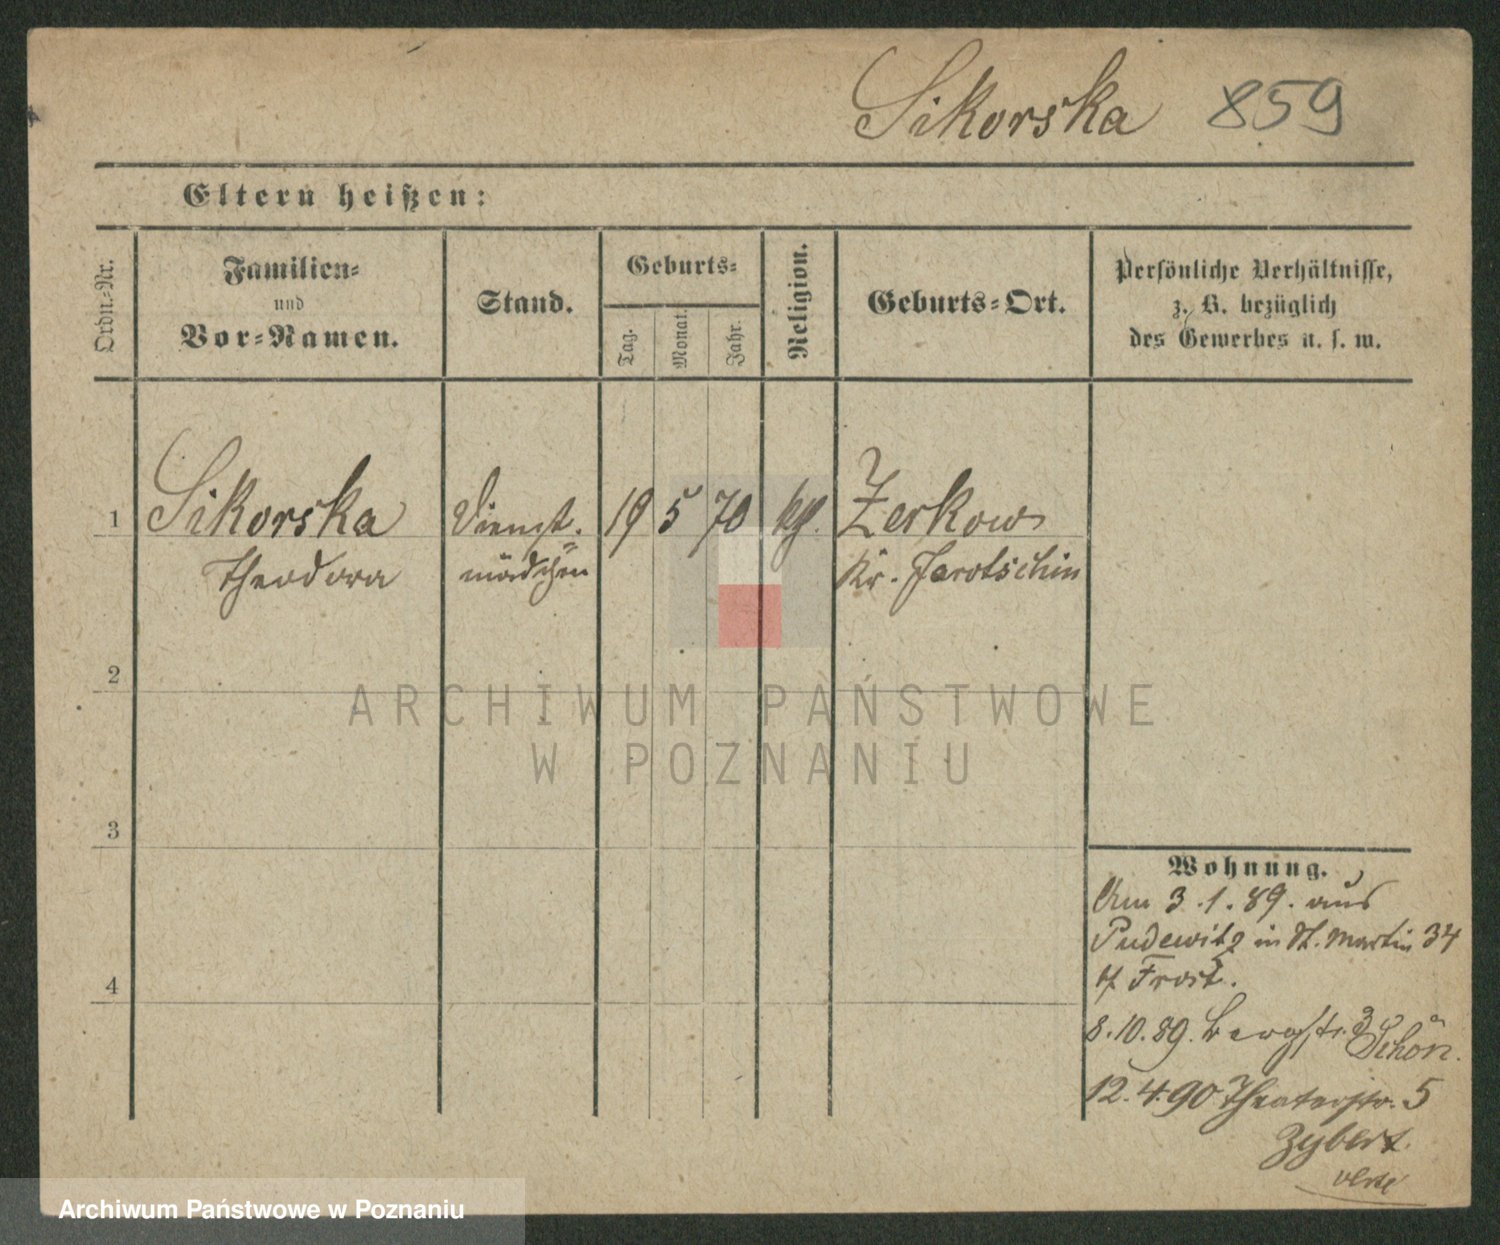 Sikorska 859
Eltern heißen:
Ordn.-Nr.
Familien- und Vor-Namen.
Stand.
Geburts-
Tag.
Monat.
Jahr.
Religion.
Geburts-Ort.
Persönliche Verhältnisse,
z. B. bezüglich
des Gewerbes u. s. w.
1 Sikorska Dienst- 19 5 70 kh. Zerkow
Theodora mädchen Kr. Jarotschin
2
3
4
Wohnung.
Am 3.1.89. aus
Pudewitz in St. Martin 34
Frost.
8.10.89. Bergstr. 3 Schön.
12.4.90 Theaterstr. 5
Zybert.
ARCHIWUM PAŃSTWOWE
W POZNANIU
Archiwum Państwowe w Poznaniu